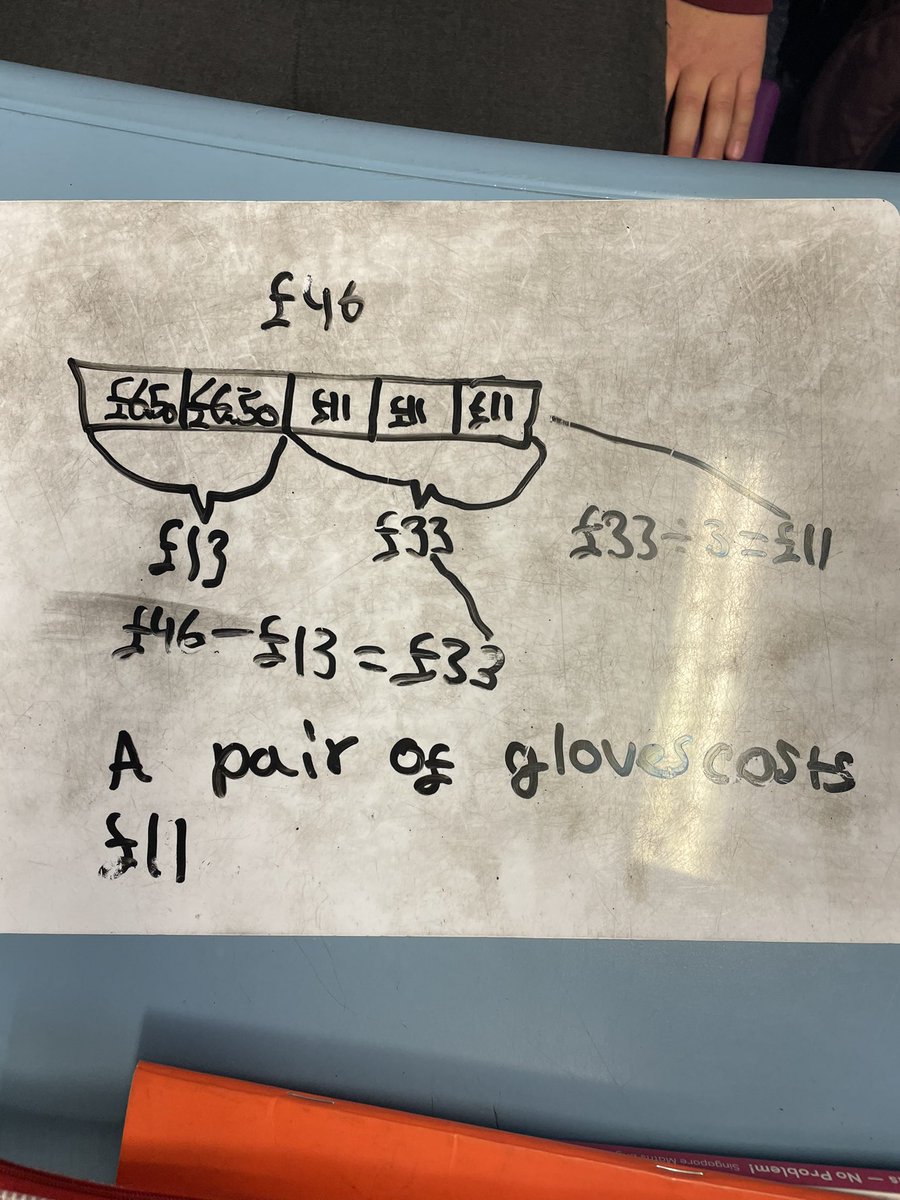 £46
£6.50 £6.50 £11 £11 £11
£13 £33 £33÷3=£11
£46-£13=£33
A pair of gloves costs
£11
s — No Problem! Singapore Maths